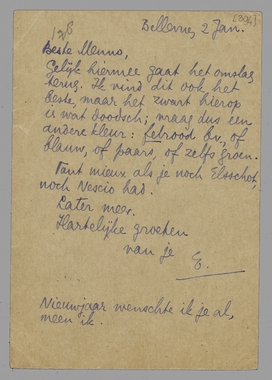 Bellevue, 2 Jan.
Beste Menno,
Gelijk hiermee gaat het omslag
terug. Ik vind dit ook het
beste, maar het zwart hierop
is wat doodsch; vraag dus een
andere kleur: steenrood bv, of
blauw, of paars, of zelfs groen.
Tant mieux als je nog Elsschot,
noch Vescio had.
Later meer.
Hartelijke groeten
van je
E.
Nieuwjaar wenschte ik je al,
meen ik.